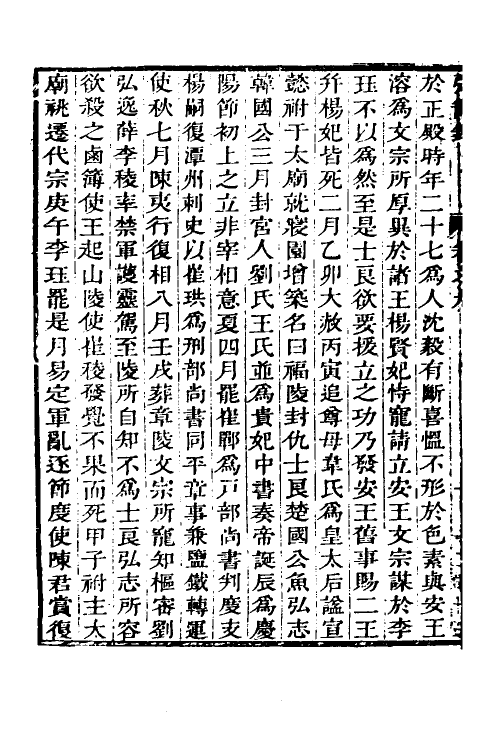 於正殿時年二十七為人沈毅有斷喜慍不形於色素與安王
溶為文宗所厚異於諸王楊賢妃恃寵請立安王文宗謀於李
珏不以為然至是士良欲要援立之功乃發安王舊事賜二王
幷楊妃皆死二月乙卯大赦丙寅追尊母韋氏為皇太后諡宣
懿祔于太廟就寢園增築名曰福陵封仇士良楚國公魚弘志
韓國公三月封宮人劉氏王氏並為貴妃中書奏帝誕辰為慶
陽節初上之立非宰相意夏四月罷崔鄲為戸部尚書判度支
楊嗣復潭州刺史以崔珙為刑部尚書同平章事兼鹽鐵轉運
使秋七月陳夷行復相八月壬戌葬章陵文宗所寵知樞審劉
弘逸薛李稜率禁軍護靈駕至陵所自知不為士良弘志所容
欲殺之鹵簿使王起山陵使崔稜發覺不果而死甲子祔主太
廟祧遷代宗庚午李珏罷是月易定軍亂逐節度使陳君賞復